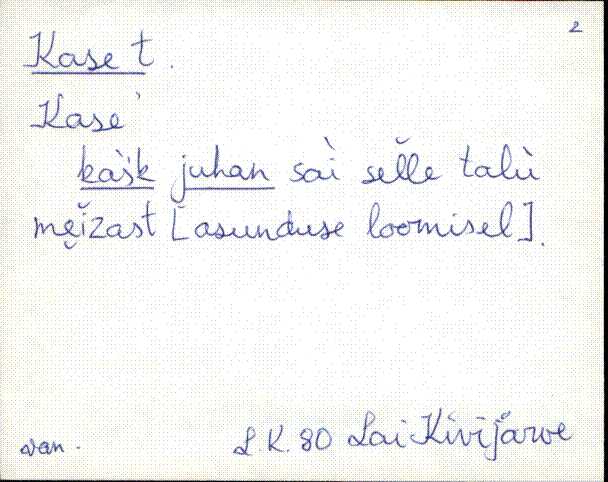 2
Kase t.
Kase'
kàsk juhan sai selle talu
meizast [asunduse loomisel].
van. L.K. 80 Lai Kivijärve